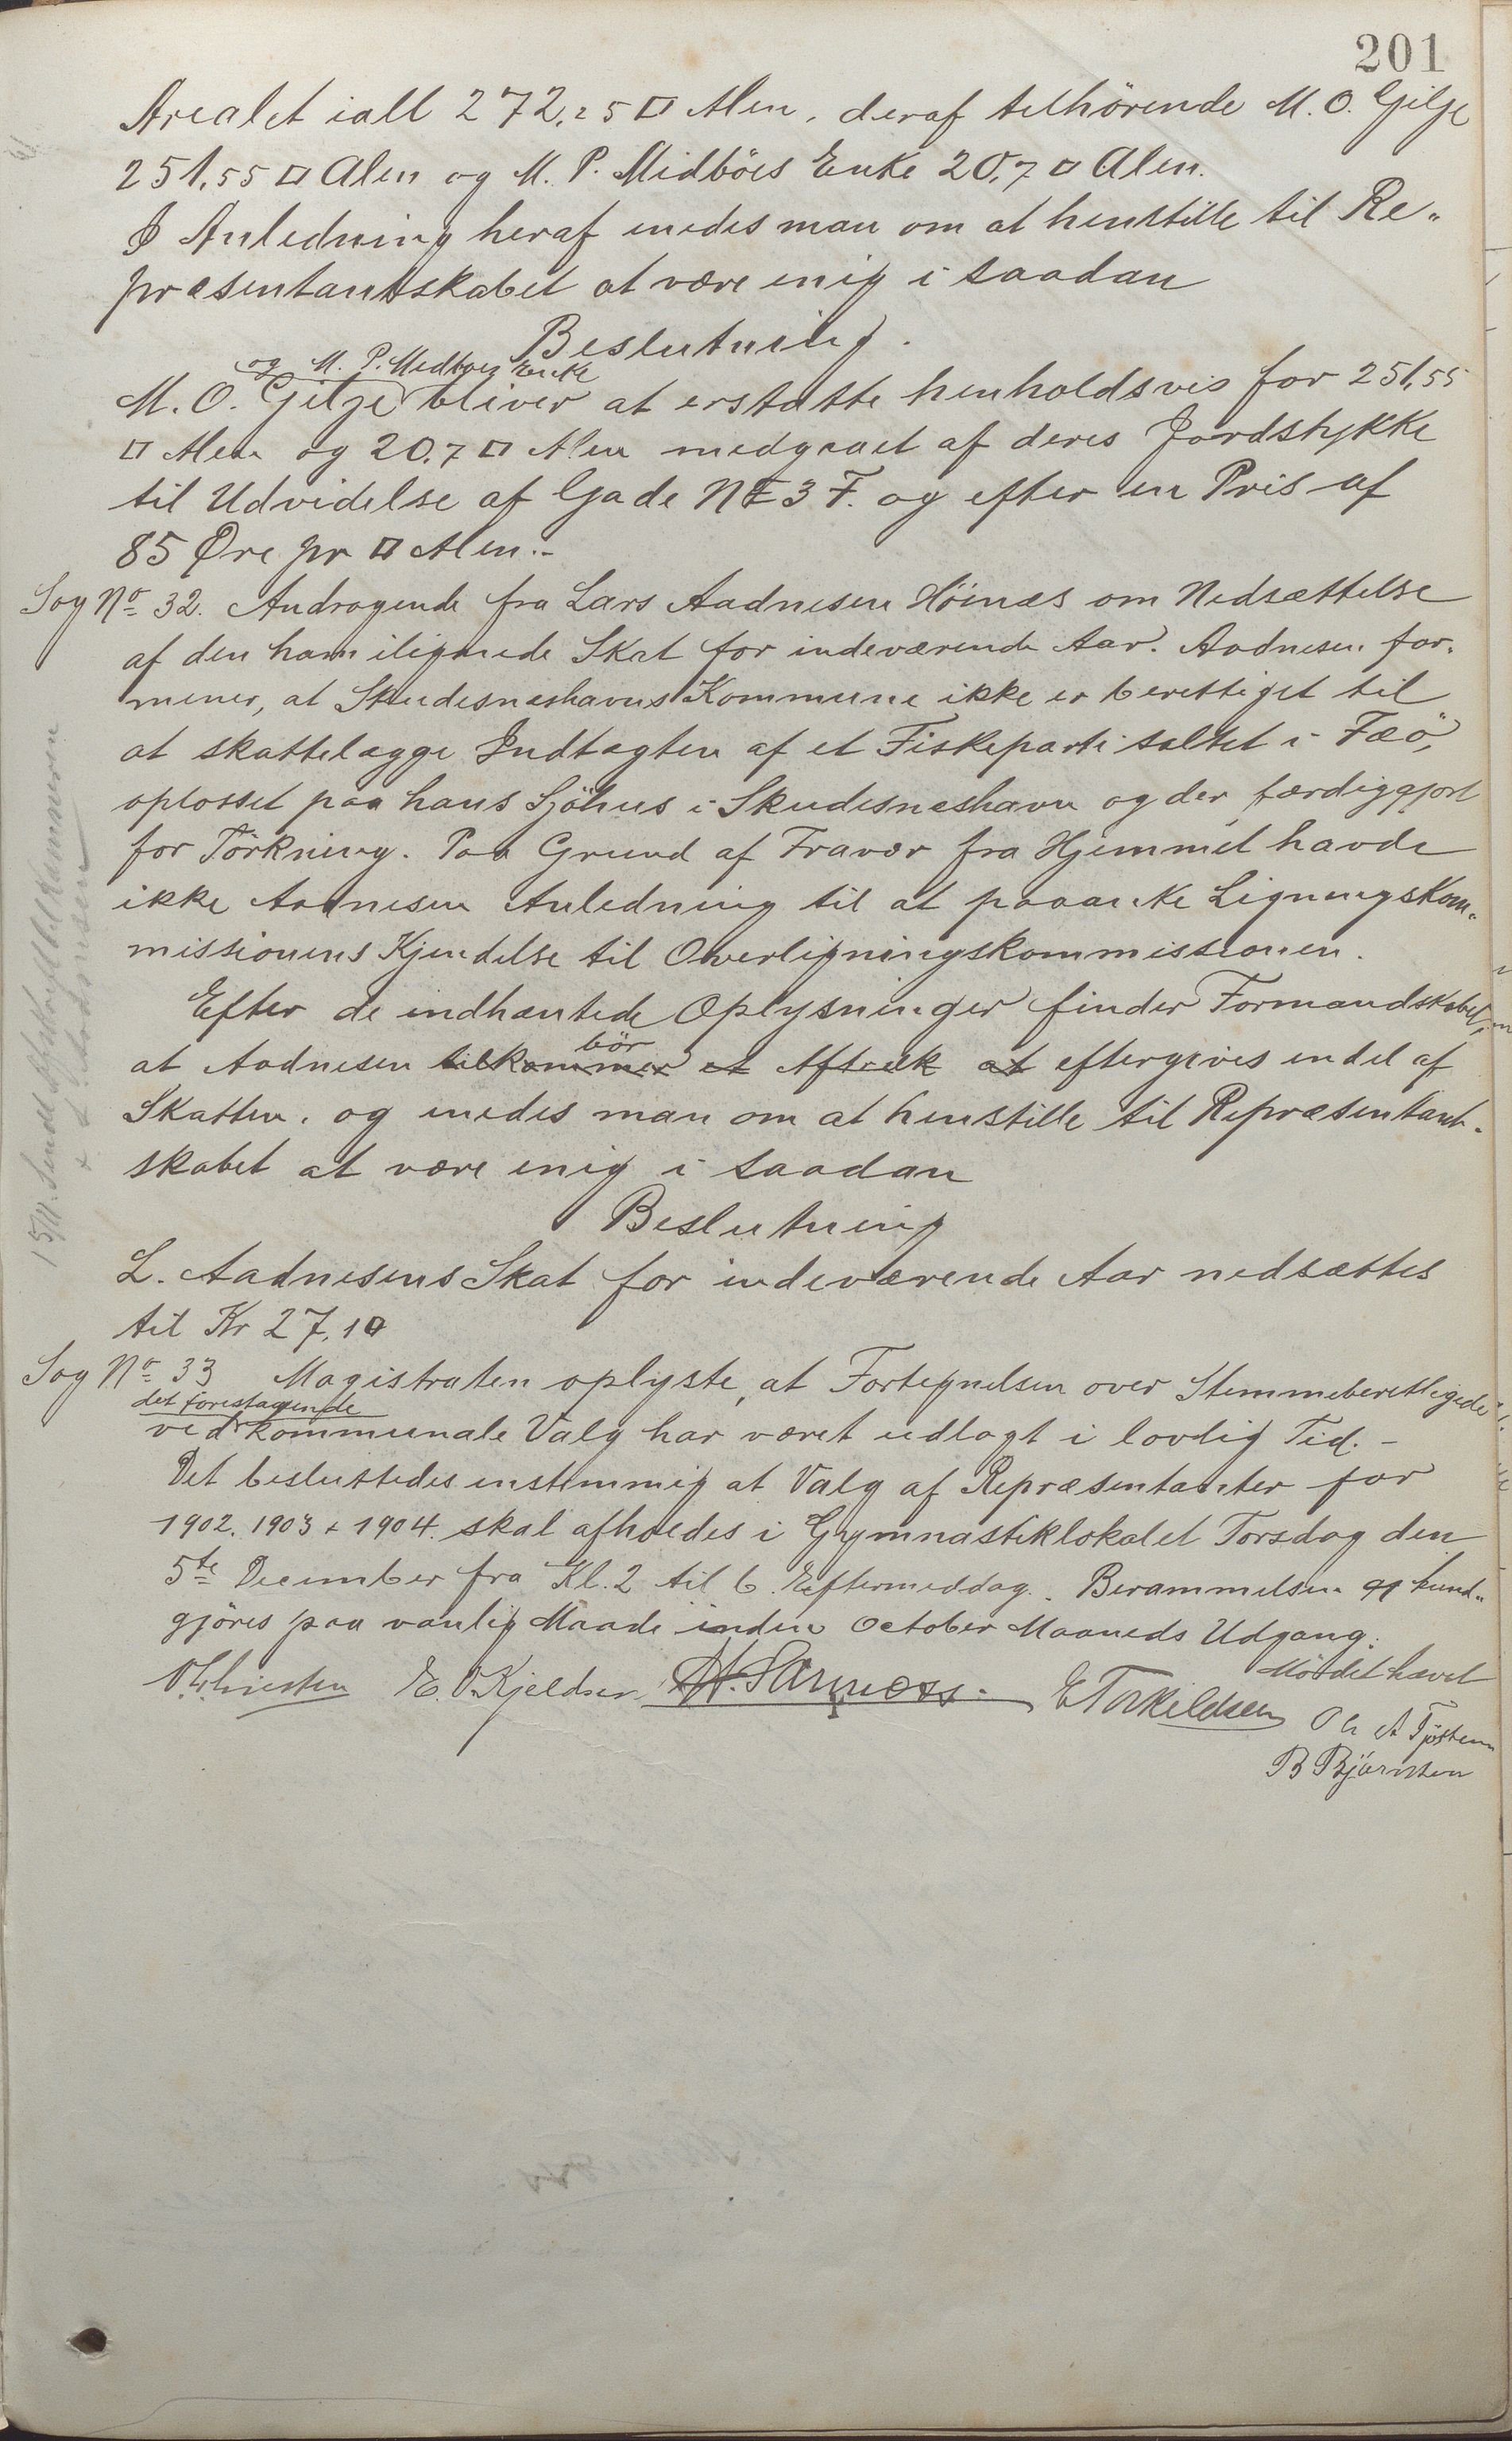 201
Arealet ialt 272.25 □ Alen, deraf tilhörende M. O. Gilje
251,55 □ Alen og M. P. Midböes Enke 20,7 □ Alen.
I Anledning heraf indes man om at henstille til Re-
præsentantskabet at være enig i saadan
Beslutning.
og M. P. Midboes Enke
M. O. Gilje bliver at erstatte henholdsvis for 251,55
□ Alen og 20,7 □ Alen medgaaet af deres Jordstykke
til Udvidelse af Gade No 3 F. og efter en Pris af
85 Øre pr □ Alen.-
Sag No 32. Andragende fra Lars Aadnesen Höinæs om Nedsættelse
af den ham ilignede Skat for indeværende Aar. Aadnesen for-
mener, at Skudesneshavns Kommune ikke er berettiget til
at skattelægge Indtægten af et Fiskeparti saltet i Fæö,
oplosset paa hans Sjöhus i Skudesneshavn og der færdiggjort
for Törkning. Paa Grund af Fravær fra Hjemmet havde
ikke Aadnesen Anledning til at paaanke Ligningskom-
missionens Kjendelse til Overligningskommissionen.
Efter de indhentede Oplysninger finder Formandskabet,
bör
at Aadnesen tilkommer et Aftræk at eftergives endel af
Skatten, og indes man om at henstille til Repræsentant-
skabet at være enig i saadan
Beslutning
L. Aadnesens Skat for indeværende Aar nedsættes
til Kr 27,10
Sag No 33 Magistraten oplyste, at Fortegnelsen over Stemmeberettigede
det forestaaende
ved kommunale Valg har været udlagt i lovlig Tid. -
Det besluttedes enstemmig at Valg af Repræsentanter for
1902. 1903 & 1904 skal afholdes i Gymnastiklokalet Torsdag den
5te December fra Kl. 2 til 6 Eftermiddag. Berammelsen kund-
gjöres paa vanlig Maade inden October Maaneds Udgang.
Mödet hævet
E. O. Kjeldsen E Torkildsen
O A Tjösten
B Björnsen
15/11. Sendt Afskrift